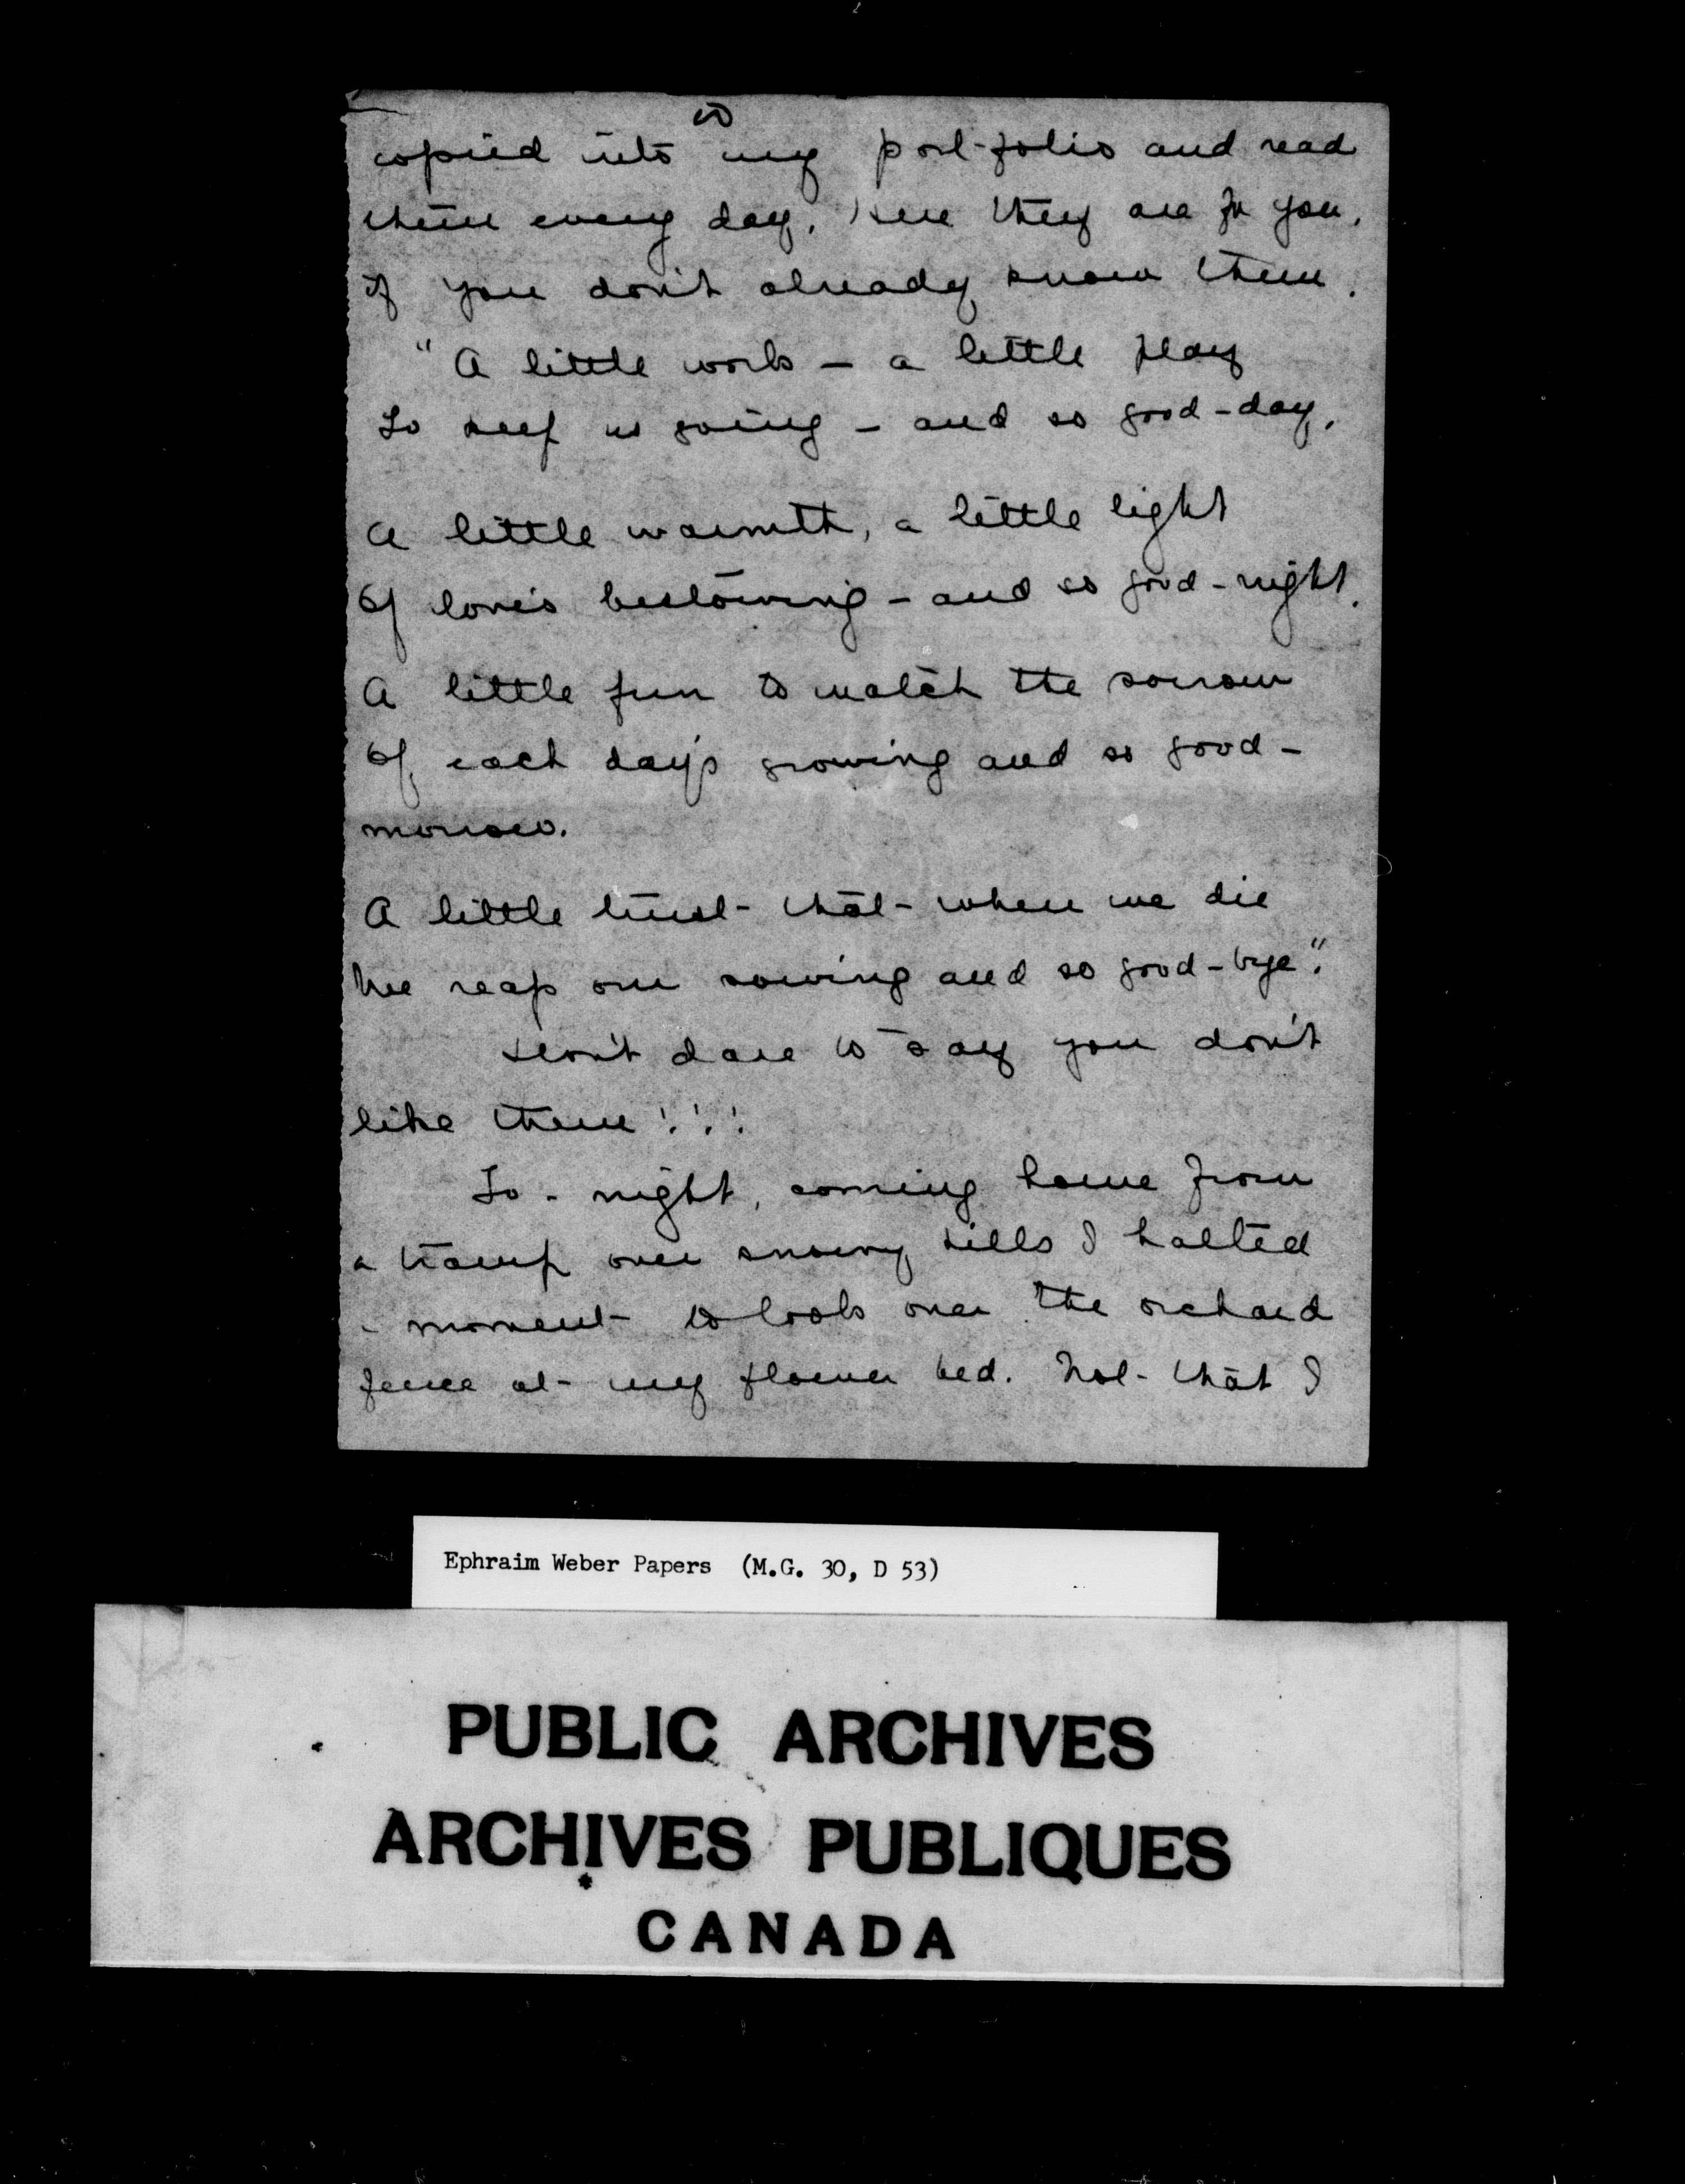 copied into my port-folio and read
them every day. Here they are for you,
if you don't already know them.
"A little work - a little play
To keep us going - and so good-day.
A little warmth, a little light
Of love's bestowing - and so good-night.
A little fun to match the sorrow
Of each day's growing and so good-
morrow.
A little trust that when we die
We reap our sowing and so good-bye".
Don't dare to say you don't
like them!!!
To-night, coming home from
a tramp over snowy hills I halted
a moment to look over the orchard
fence at my flower bed. Not that I
Ephraim Weber Papers (M.G. 30, D 53)
PUBLIC ARCHIVES
ARCHIVES PUBLIQUES
CANADA